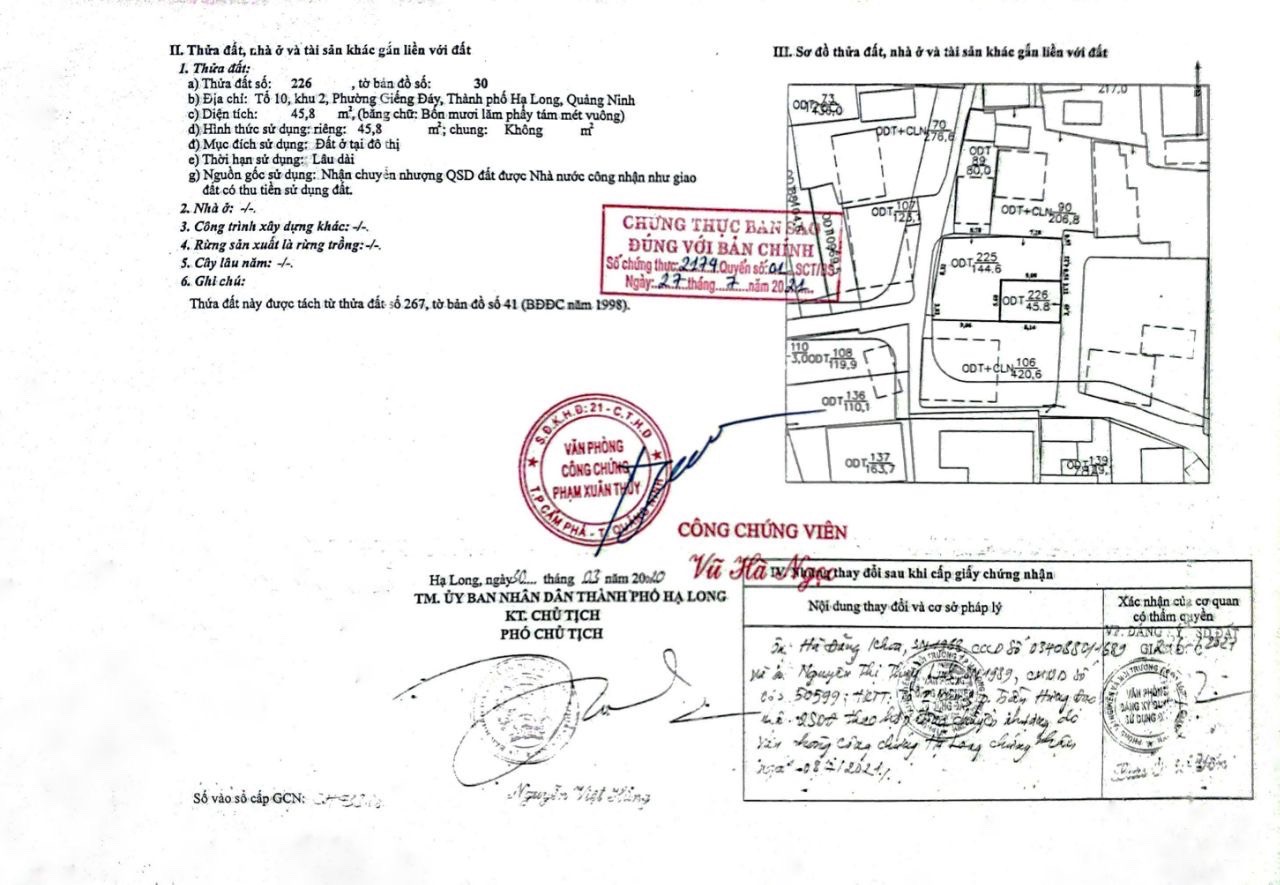 II. Thửa đất, nhà ở và tài sản khác gắn liền với đất
1. Thửa đất:
a) Thửa đất số: 226 , tờ bản đồ số: 30
b) Địa chỉ: Tổ 10, khu 2, Phường Giếng Đáy, Thành phố Hạ Long, Quảng Ninh
c) Diện tích: 45,8 m², (bằng chữ: Bốn mươi lăm phẩy tám mét vuông)
d) Hình thức sử dụng: riêng: 45,8 m²; chung: Không m²
đ) Mục đích sử dụng: Đất ở tại đô thị
e) Thời hạn sử dụng: Lâu dài
g) Nguồn gốc sử dụng: Nhận chuyển nhượng QSD đất được Nhà nước công nhận như giao
đất có thu tiền sử dụng đất.
2. Nhà ở: -/-.
3. Công trình xây dựng khác: -/-.
4. Rừng sản xuất là rừng trồng:-/-.
5. Cây lâu năm: -/-.
6. Ghi chú:
Thửa đất này được tách từ thửa đất số 267, tờ bản đồ số 41 (BĐĐC năm 1998).
CHỨNG THỰC BẢN SAO
ĐÚNG VỚI BẢN CHÍNH
Số chứng thực: 2179 Quyển số: 01 SCT/BS
Ngày: 27 tháng 7 năm 2021
III. Sơ đồ thửa đất, nhà ở và tài sản khác gắn liền với đất
73
ODT+CLN 70
276,6
217,0
ODT
89
80,0
ODT 107
ODT+CLN 90
206,8
ODT 225
144.6
ODT 226
45.8
110
ODT 108
119,9
ODT+CLN 106
420,6
ODT 136
110,1
ODT 137
163,7
ODT 139
S.Đ.K.H.Đ: 21 - C.T.H.D
VĂN PHÒNG
CÔNG CHỨNG
PHẠM XUÂN THỦY
T.P CẨM PHẢ - T. QUẢNG NINH
CÔNG CHỨNG VIÊN
Vũ Hà Ngọc
Hạ Long, ngày 30 tháng 03 năm 2020
TM. ỦY BAN NHÂN DÂN THÀNH PHỐ HẠ LONG
KT. CHỦ TỊCH
PHÓ CHỦ TỊCH
Nguyễn Việt Hùng
Số vào sổ cấp GCN:
IV. Những thay đổi sau khi cấp giấy chứng nhận
Nội dung thay đổi và cơ sở pháp lý
Xác nhận của cơ quan
có thẩm quyền
Hà Đăng Khoa, CCCD số
Nguyễn Thị SN 1989, CMND số
50599; HKTT: Trần Hưng Đạo
QSDĐ theo hợp đồng chuyển nhượng do
Văn phòng công chứng Hạ Long chứng nhận
VĂN PHÒNG
ĐĂNG KÝ QUYỀN
SỬ DỤNG ĐẤT